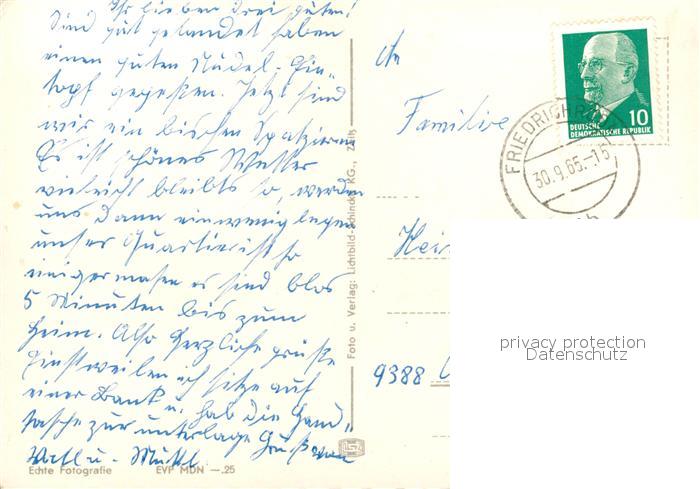 Ihr lieben drei guten!
Sind gut gelandet haben
einen guten Nudel-Ein-
topf gegessen. Jetzt sind
wir ein bischen Spatzieren
Es ist schönes Wetter
vieleicht bleibts so, werden
uns dann ein wenig legen
unser Quartier ist so
einigermasen es sind blos
5 Minuten bis zum
Heim. Also Herzliche grüße
Einstweilen ich sitze auf
einer Bank u. hab die Hand-
tasche zur unterlage Gruß von
u. Mutti
Echte Fotografie EVP MDN —,25
Foto u. Verlag: Lichtbild-Schincke KG., Zeitz
An
Familie
9388
DEUTSCHE
DEMOKRATISCHE REPUBLIK
10
30.9.65.-15
privacy protection
Datenschutz